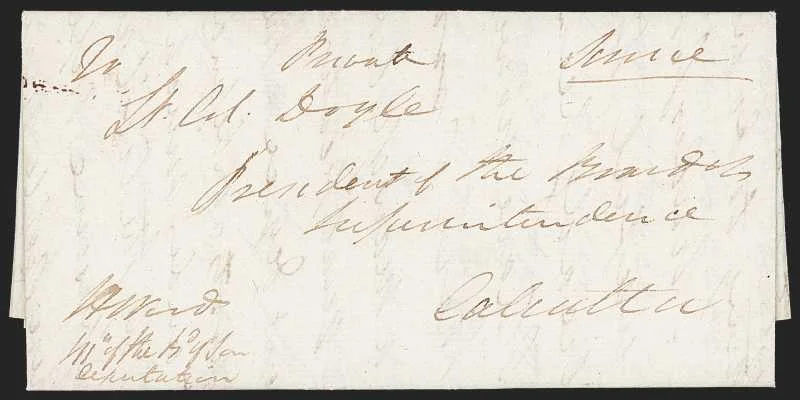 To Private Service
Lt. Col. Doyle
President of the Board of
Superintendence
Calcutta
HWard
Mr of the Bd of Sup
deputation